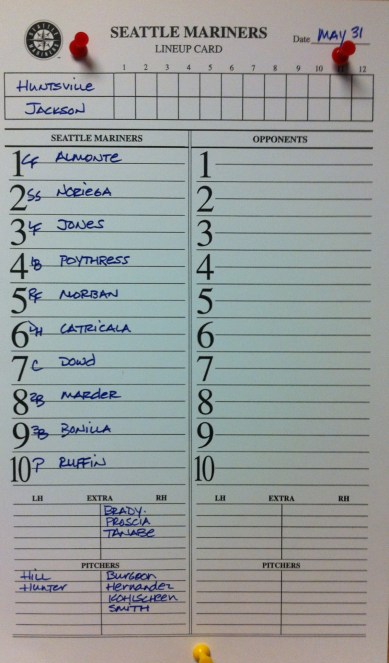 SEATTLE MARINERS
LINEUP CARD
Date MAY 31
1 2 3 4 5 6 7 8 9 10 11 12
HUNTSVILLE
JACKSON
SEATTLE MARINERS
1 CF ALMONTE
2 SS NORIEGA
3 LF JONES
4 1B POYTHRESS
5 RF MORBAN
6 DH CATRICALA
7 C DOWD
8 2B MARDER
9 3B BONILLA
10 P RUFFIN
LH EXTRA RH
BRADY
PROSCIA
TANABE
PITCHERS
HILL BURGOON
HUNTER HERNANDEZ
KOHLSCHEEN
SMITH
OPPONENTS
1
2
3
4
5
6
7
8
9
10
LH EXTRA RH
PITCHERS